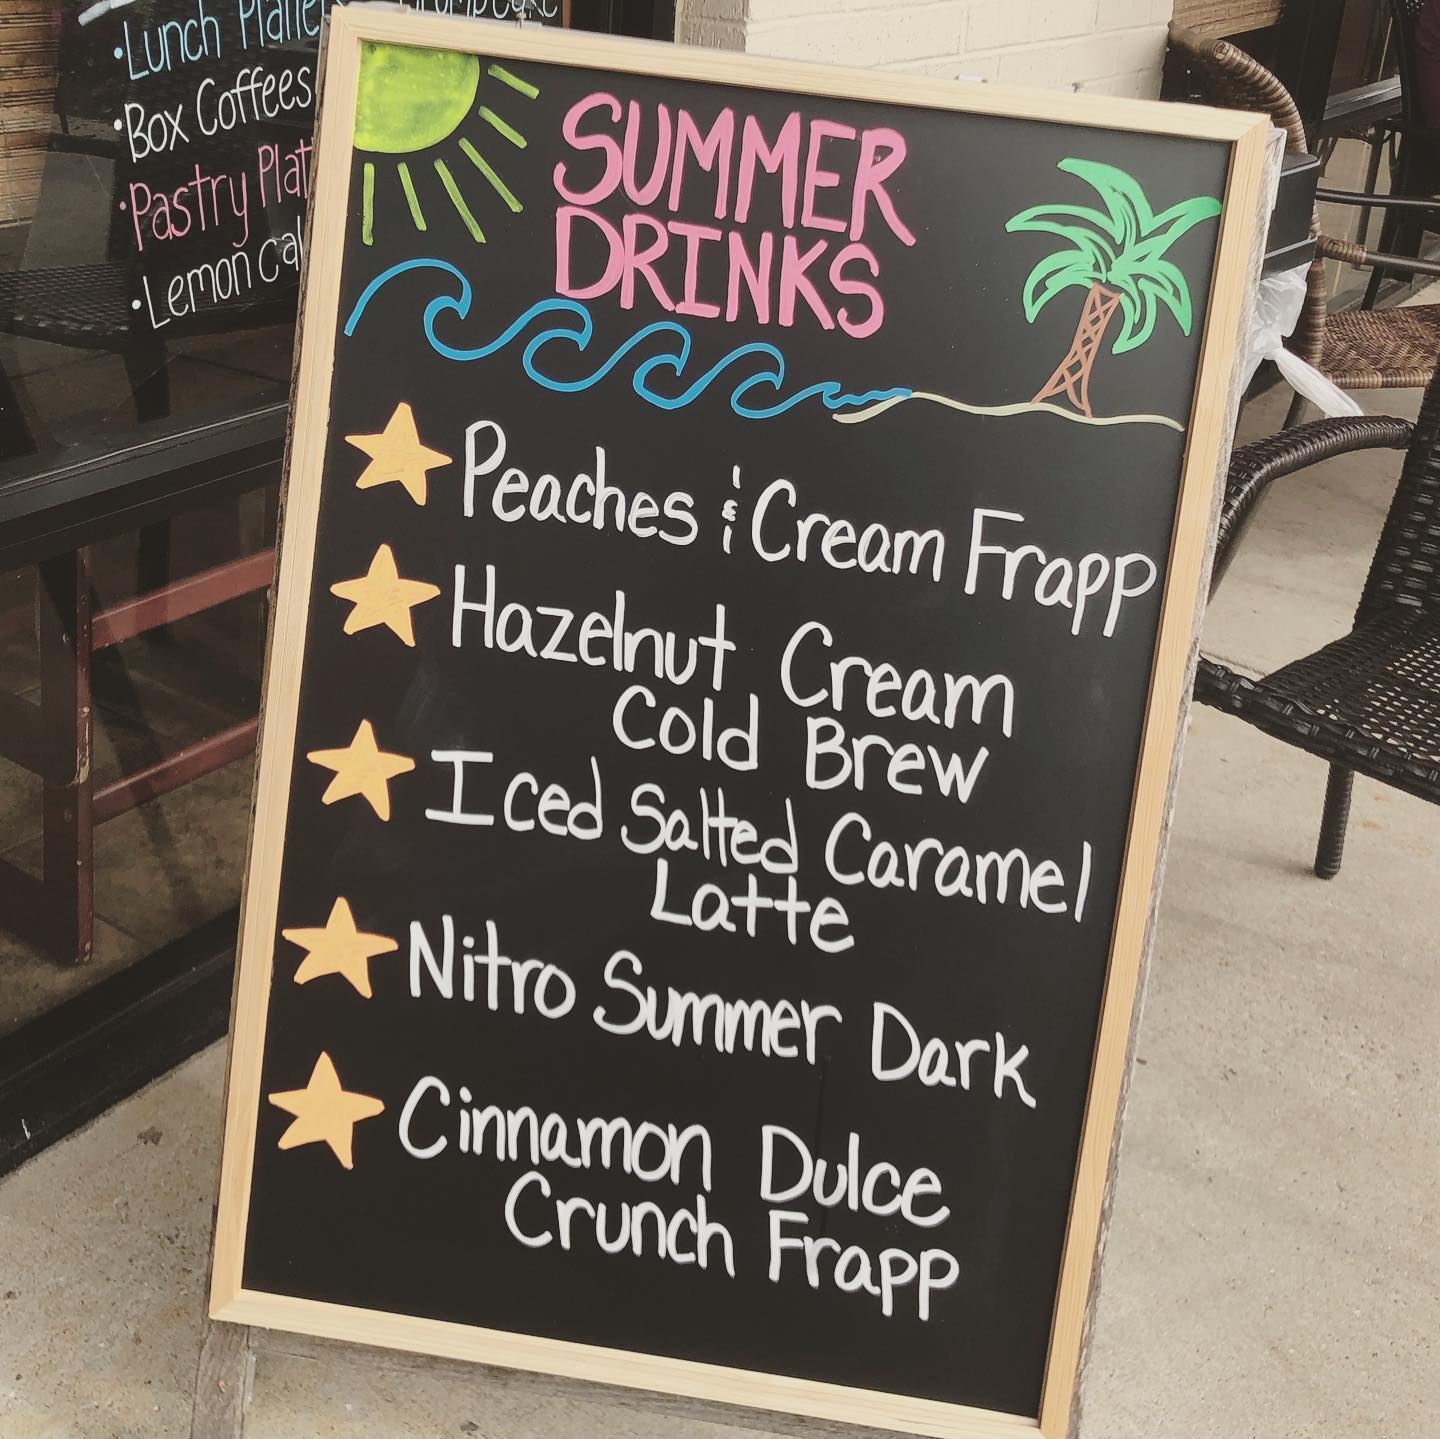 •Lunch
•Box Coffees
•Pastry
•Lemon
SUMMER
DRINKS
Peaches & Cream Frapp
Hazelnut Cream
Cold Brew
Iced Salted Caramel
Latte
Nitro Summer Dark
Cinnamon Dulce
Crunch Frapp